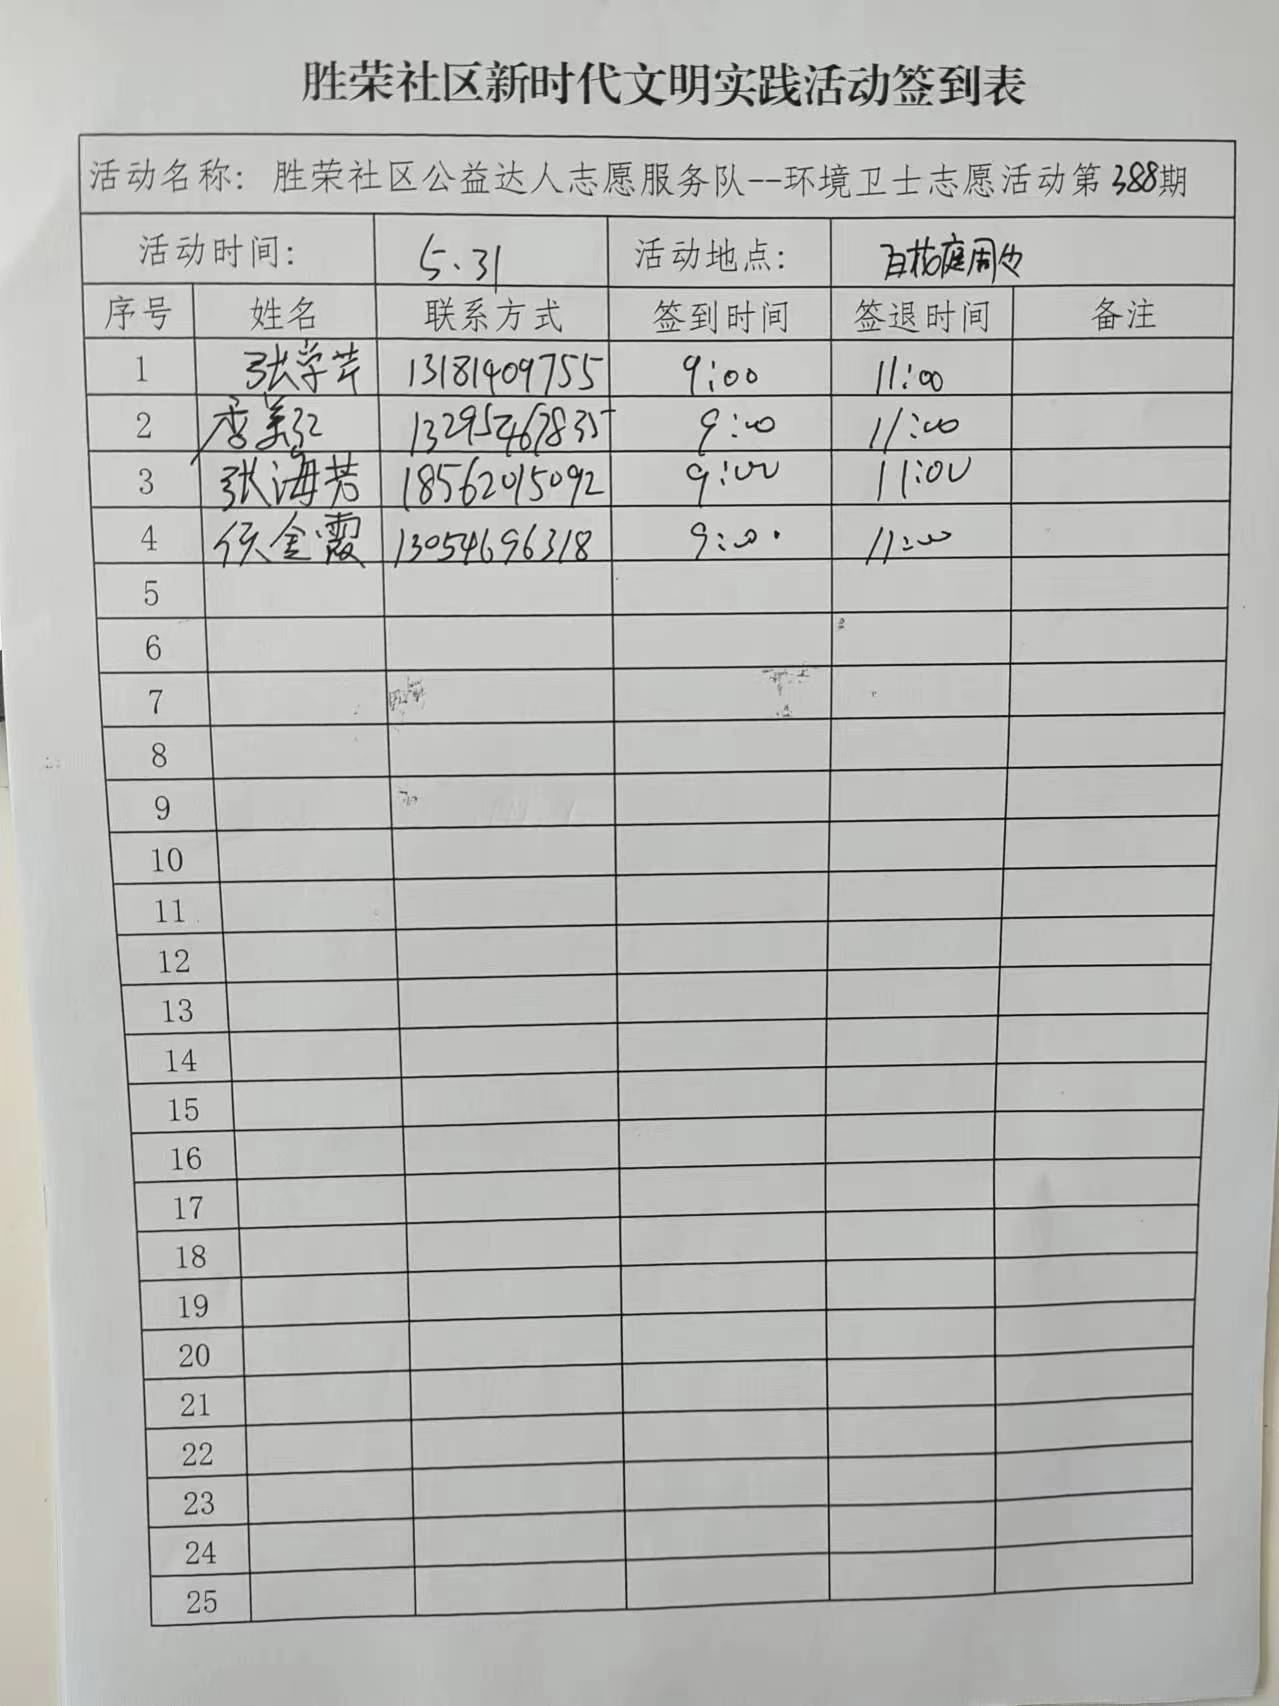 胜荣社区新时代文明实践活动签到表
活动名称：胜荣社区公益达人志愿服务队--环境卫士志愿活动第388期
活动时间： 5.31 活动地点： 庭周
序号 姓名 联系方式 签到时间 签退时间 备注
1 张学芹 13181409755 9:00 11:00
2 李美红 13295467835 9:00 11:00
3 张海芳 18562015092 9:00 11:00
4 侯金霞 13054696318 9:00 11:00
5
6
7
8
9
10
11
12
13
14
15
16
17
18
19
20
21
22
23
24
25